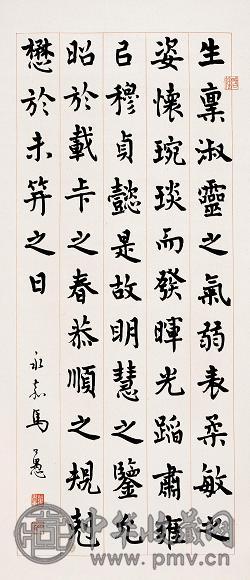 生稟淑靈之氣弱表柔敏之
姿懷琬琰而發暉光蹈肅雍
㠯穆貞懿是故明慧之鑒兆
昭於載卡之春恭順之規克
懋於未笄之日
永嘉馬公愚
中华收藏网
www.pmv.cn